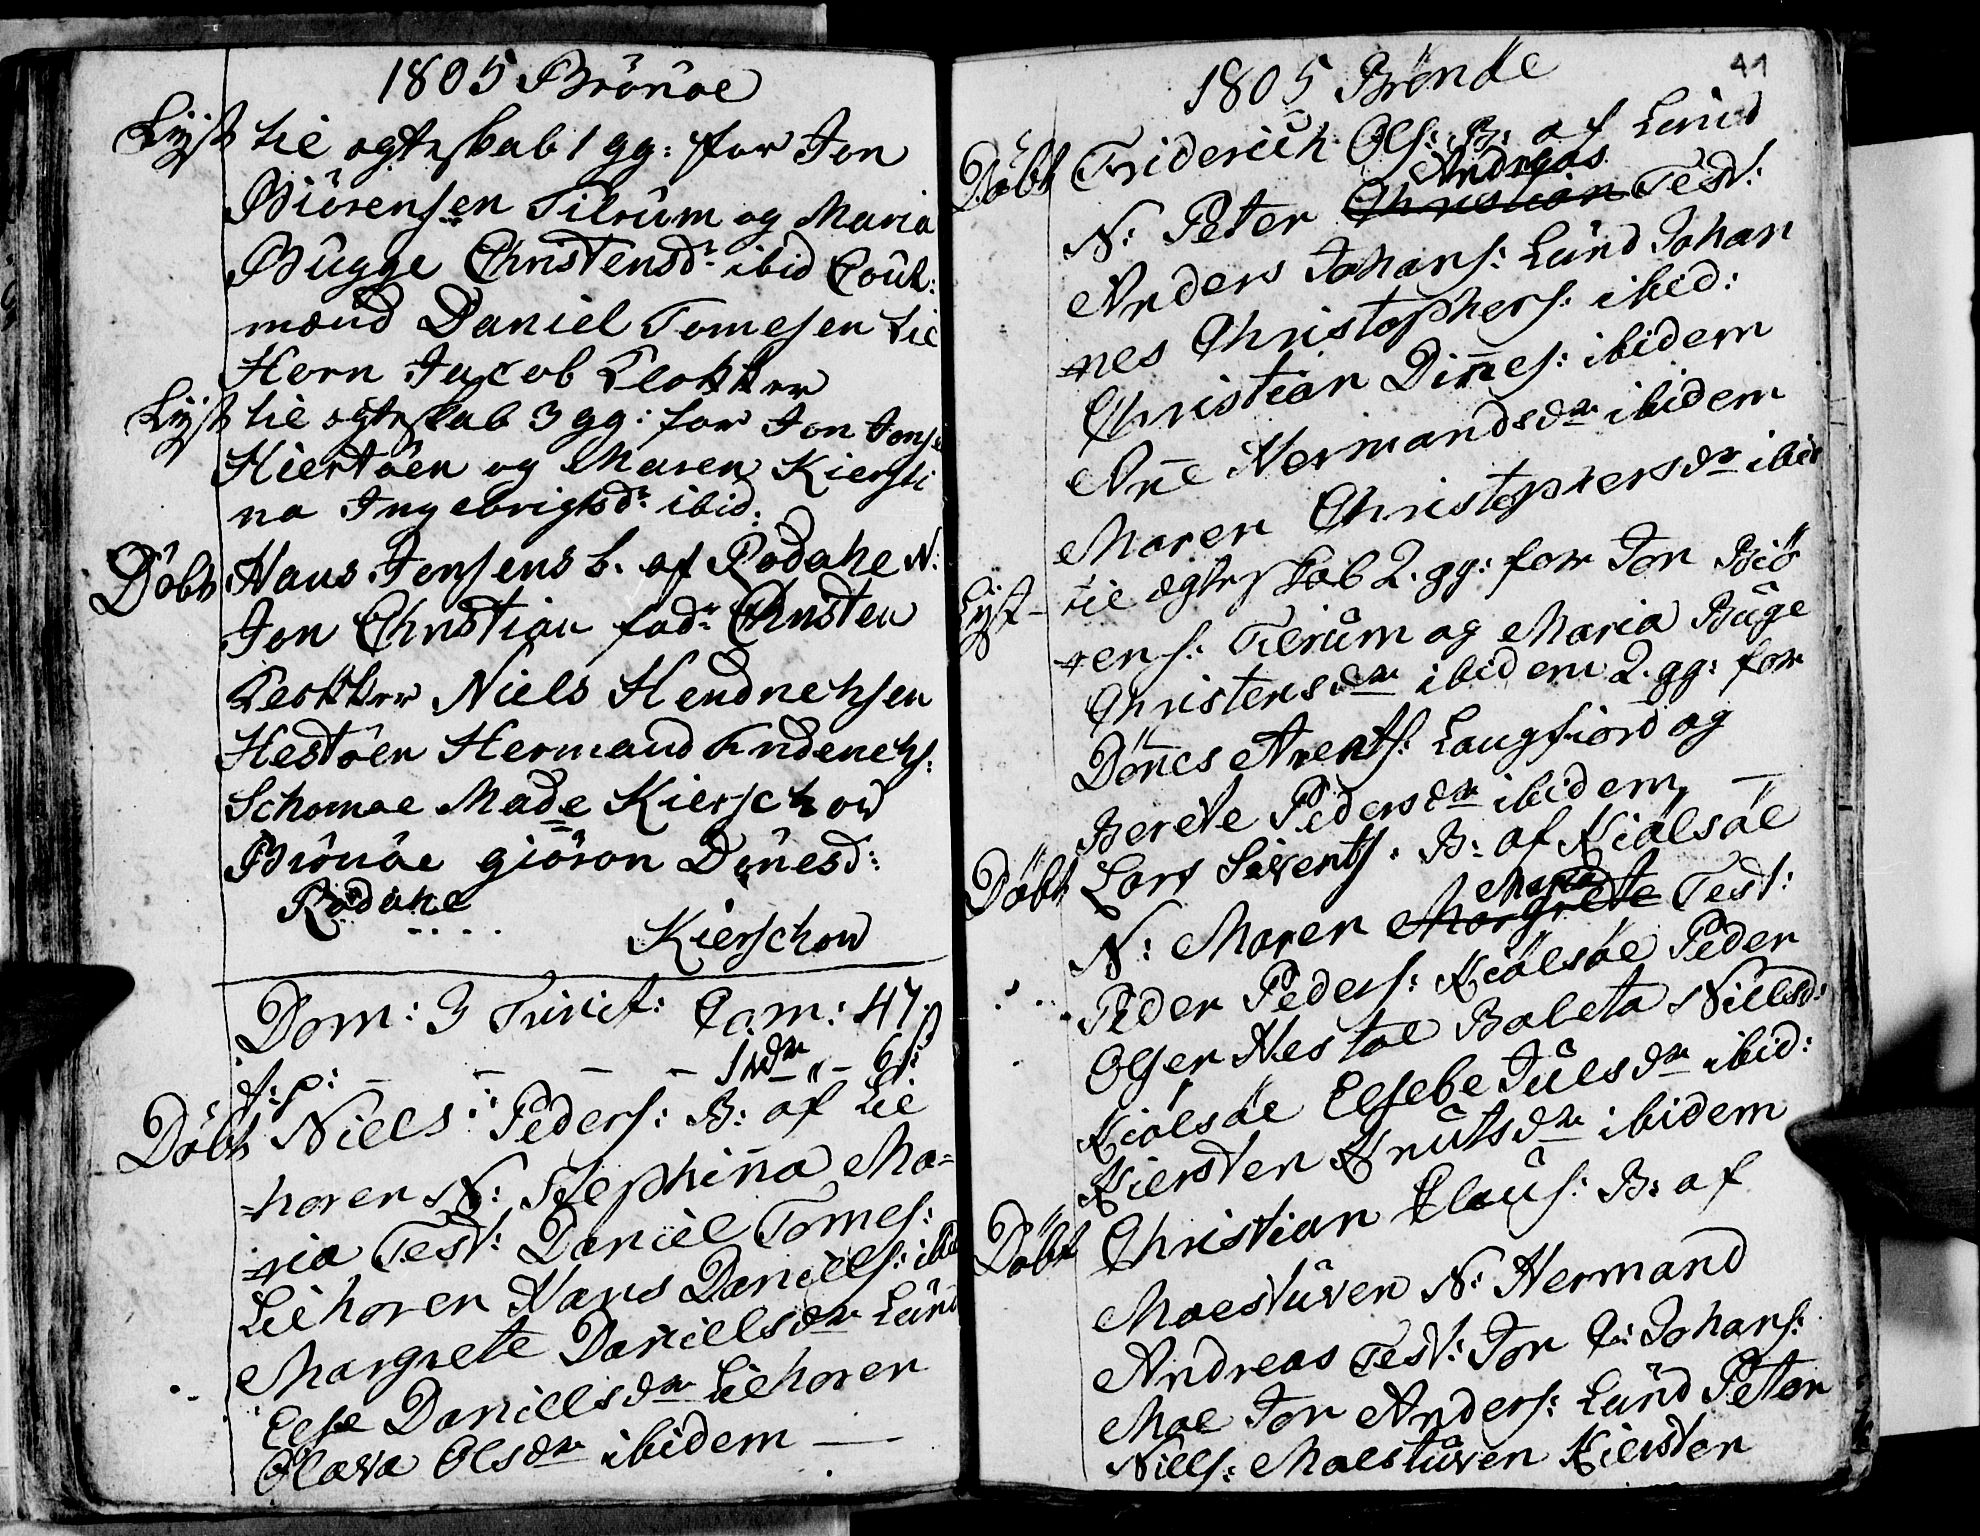 1805 Brönöe
Lÿst til ægteskab 1 gg: for Jon
Biörensen Tilrum og Maria
Bugge Christensdr ibid Cout:
mand Daniel Tomesen til
Horn Jacob Klokker
Lÿst til ægteskab 3 gg: for Jon Jons:
Hiertöen og Maren Kiersti
na Ingebrigtsdr ibid.
Döbt Hans Jensens b. af Rödahe N:
Jon Christian fadr Christen
Klokker Niels Hendrechsen
Hestöen Hermand Friderichs:
Schomoe Made Kierschow
Brönöe giöron Dönesd:
Rödahe
Kierschow
Dom: 3 Trinit: Com: 47
d: s: p: - - - - 1 dr - 6 s
Döbt Niels Peders: B: af Lil
horen N: Stephina Ma=
=ria Test: Daniel Tomes:
Lilhoren Hans Daniels: ibid
Margrete Danielsdr Lund
Else Danielsdr Lilhoren
Olava Olsdr ibidem —
1805 Brönöe
41
Döbt Friderich Ols: B: af Lund
Andreas
N: Peter Christian Test:
Anders Johans: Lund Johan
nes Christophers: ibid:
Christian Dines: ibidem
Ane Hermandsdr ibidem
Maren Christophersdr ibid
Lÿst til ægteskab 2. gg: for Jon Biö
rens: Tilrum og Maria Buge
Christensdr ibidem 2. gg: for
Dönes Arents: Langfiord og
Berete Pedersdr ibidem —
Döbt Lars Siverts: B: af Kiölsöe
Maria
N: Maren Margrete Test:
Peder Peders: Kiölsöe Peder
Olsen Hestöe Baleta Nillsd:
Kiölsöe Elsebe Julsdr ibid:
Kiersten Knutsdr ibidem
Döbt Christian Claus: B: af
Moestuven N: Hermand
Andreas Test: Jon C: Johans:
Moe Jon Anders: Lund Peter
Niels: Moestuven Kiersten